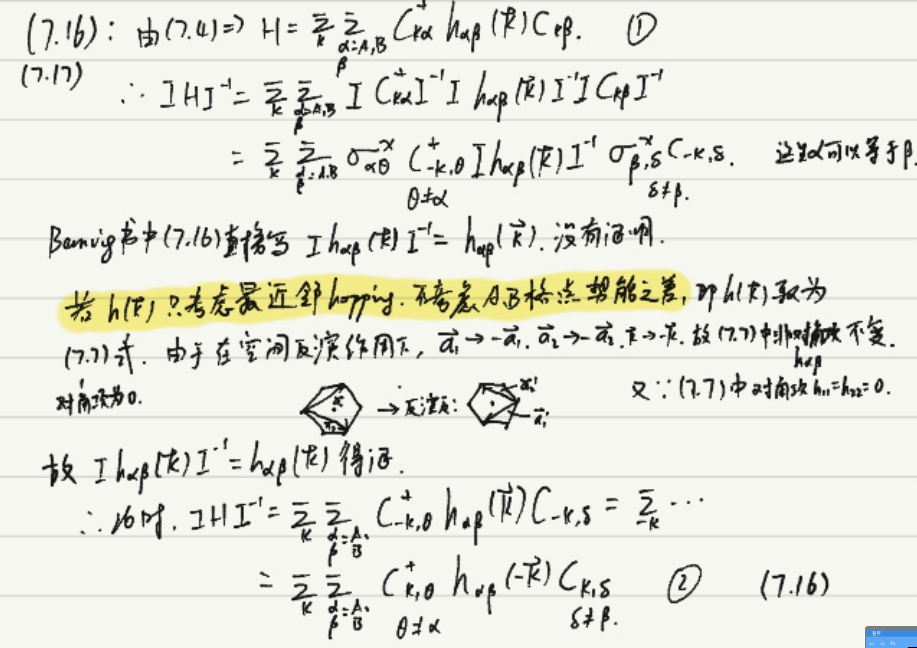 (7.16): 由(7.4)⇒ H = Σ_k Σ_{α=A,B β} C⁺_{kα} h_{αβ}(k⃗) C_{kβ}. ①
(7.17)
∴ IHI⁻¹ = Σ_k Σ_{α=A,B β} I C⁺_{kα} I⁻¹ I h_{αβ}(k⃗) I⁻¹ I C_{kβ} I⁻¹
= Σ_k Σ_{α β=A,B} σˣ_{αθ} C⁺_{-k,θ} I h_{αβ}(k⃗) I⁻¹ σˣ_{β,δ} C_{-k,δ}. 这里α可以等于β.
θ≠α δ≠β.
Bernevig书中(7.16)直接写 I h_{αβ}(k⃗) I⁻¹ = h_{αβ}(k⃗). 没有证明.
若 h(k⃗) 只考虑最近邻hopping. 不考虑A,B格点势能之差, 即h(k⃗)取为
(7.7)式. 由于在空间反演作用下, a⃗₁→-a⃗₁, a⃗₂→-a⃗₂, k⃗→-k⃗. 故(7.7)中非对角项不变.
h_{αβ}
对角项为0.
→反演后:
a⃗₁'
又∵(7.7)中对角项 h₁₁=h₂₂=0.
故 I h_{αβ}(k⃗) I⁻¹ = h_{αβ}(k⃗) 得证.
∴此时. IHI⁻¹ = Σ_k Σ_{α=A, β=B} C⁺_{-k,θ} h_{αβ}(k⃗) C_{-k,δ} = Σ_{-k} ⋯
= Σ_k Σ_{α=A, β=B} C⁺_{k,θ} h_{αβ}(-k⃗) C_{k,δ} ② (7.16)
θ≠α δ≠β.